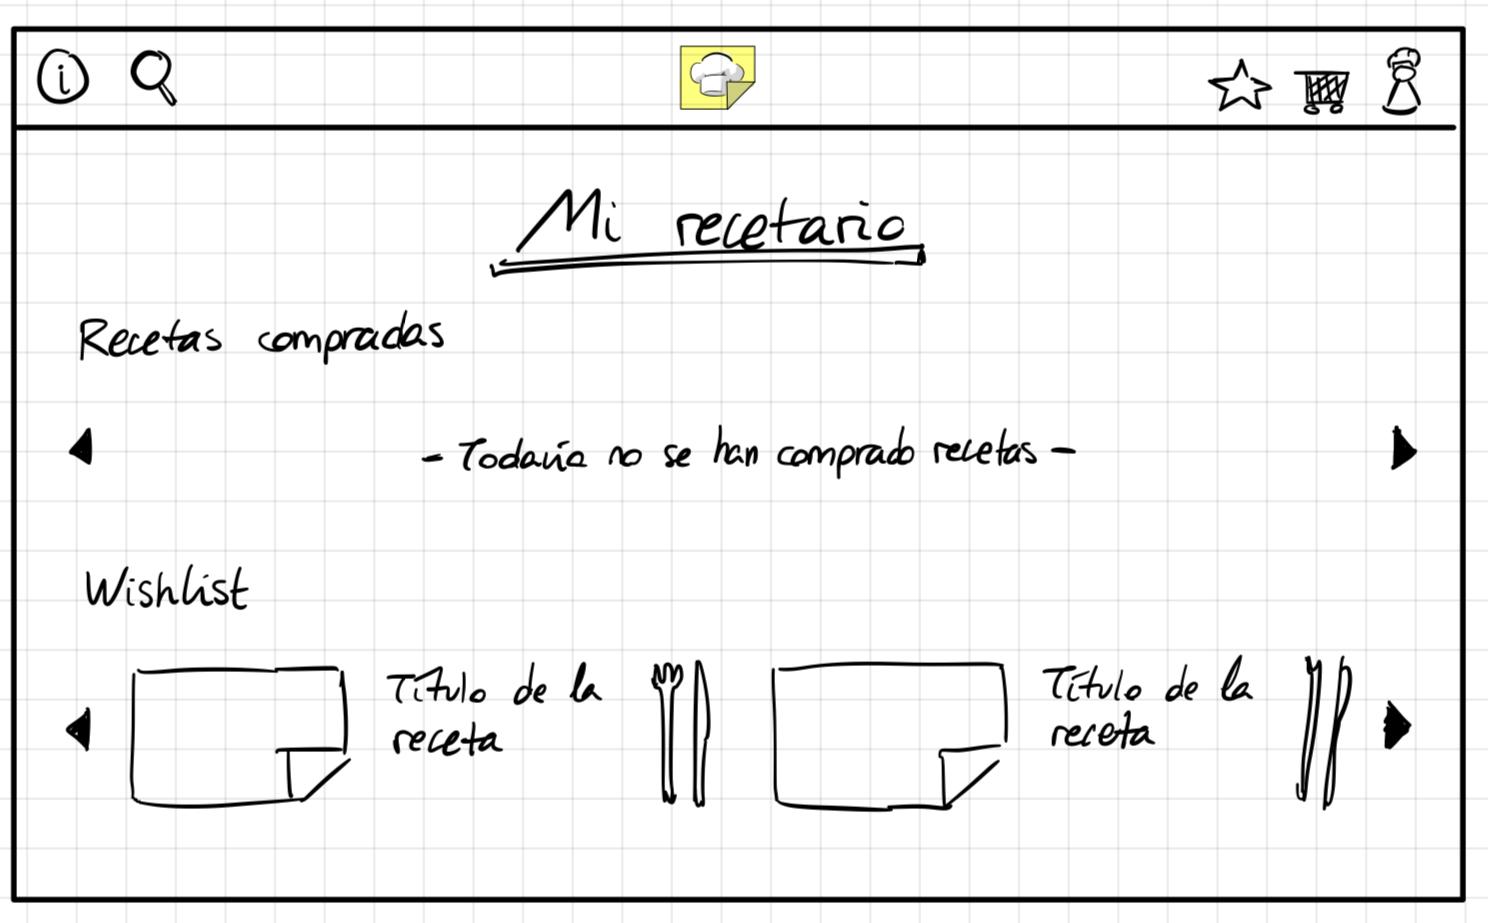 i
Mi recetario
Recetas compradas
- Todavía no se han comprado recetas -
Wishlist
Título de la
receta
Título de la
receta